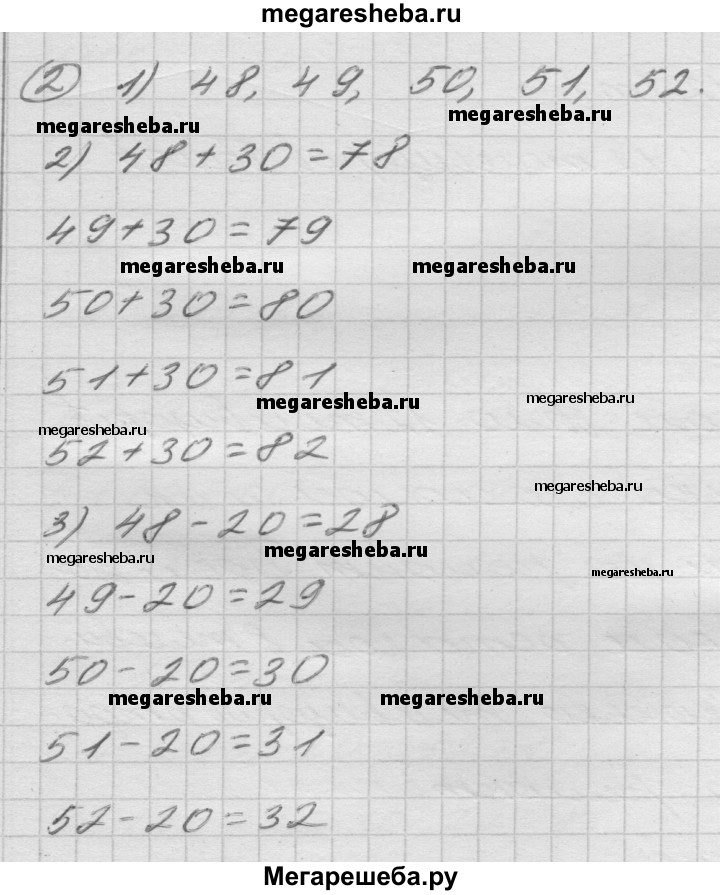 megaresheba.ru
② 1) 48, 49, 50, 51, 52.
megaresheba.ru megaresheba.ru
2) 48+30=78
49+30=79
megaresheba.ru megaresheba.ru
50+30=80
51+30=81
megaresheba.ru megaresheba.ru
megaresheba.ru
52+30=82
megaresheba.ru
3) 48-20=28
megaresheba.ru megaresheba.ru
megaresheba.ru
49-20=29
50-20=30
megaresheba.ru megaresheba.ru
51-20=31
52-20=32
Мегарешеба.ру